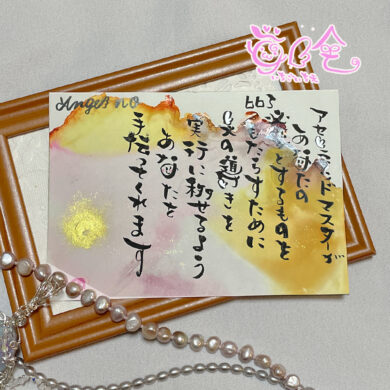 アセンデッドマスターが
あなたの
必要とするものを
もたらすために
天の導きを
実行に移せるよう
あなたを
手伝ってくれます